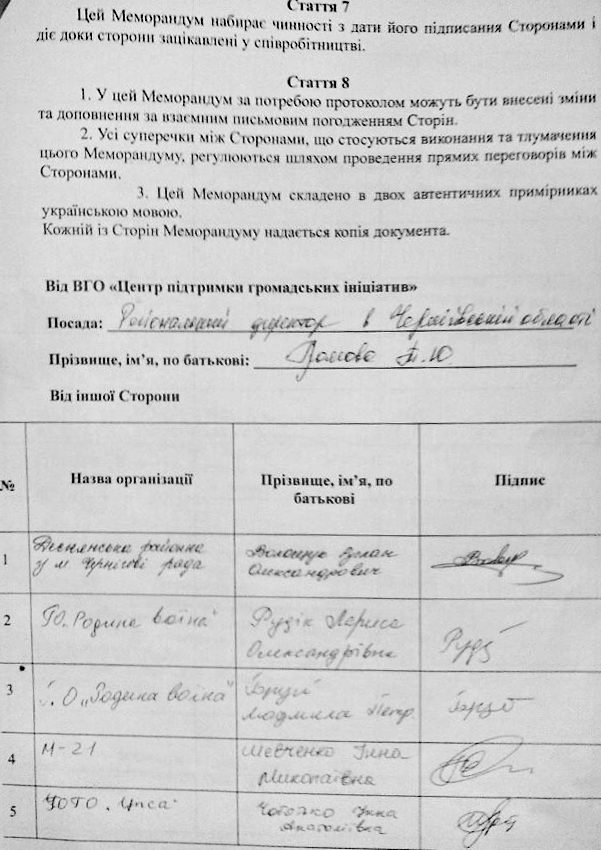 Стаття 7
Цей Меморандум набирає чинності з дати його підписання Сторонами і
діє доки сторони зацікавлені у співробітництві.
Стаття 8
1. У цей Меморандум за потребою протоколом можуть бути внесені зміни
та доповнення за взаємним письмовим погодженням Сторін.
2. Усі суперечки між Сторонами, що стосуються виконання та тлумачення
цього Меморандуму, регулюються шляхом проведення прямих переговорів між
Сторонами.
3. Цей Меморандум складено в двох автентичних примірниках
українською мовою.
Кожній із Сторін Меморандуму надається копія документа.
Від ВГО «Центр підтримки громадських ініціатив»
Посада: Регіональний директор в Чернігівській області
Прізвище, ім’я, по батькові: Т.Ю
Від іншої Сторони
№ Назва організації Прізвище, ім’я, по Підпис
батькові
1 Деснянська районна Волощук Руслан
у м. Чернігові рада Олександрович
2 ГО „Родина воїна" Рудік Лариса
Олександрівна
3 Г.О „Родина воїна"
Людмила Петр.
4 М-21 Шевченко Інна
Миколаївна
5 Інна
Анатоліївна